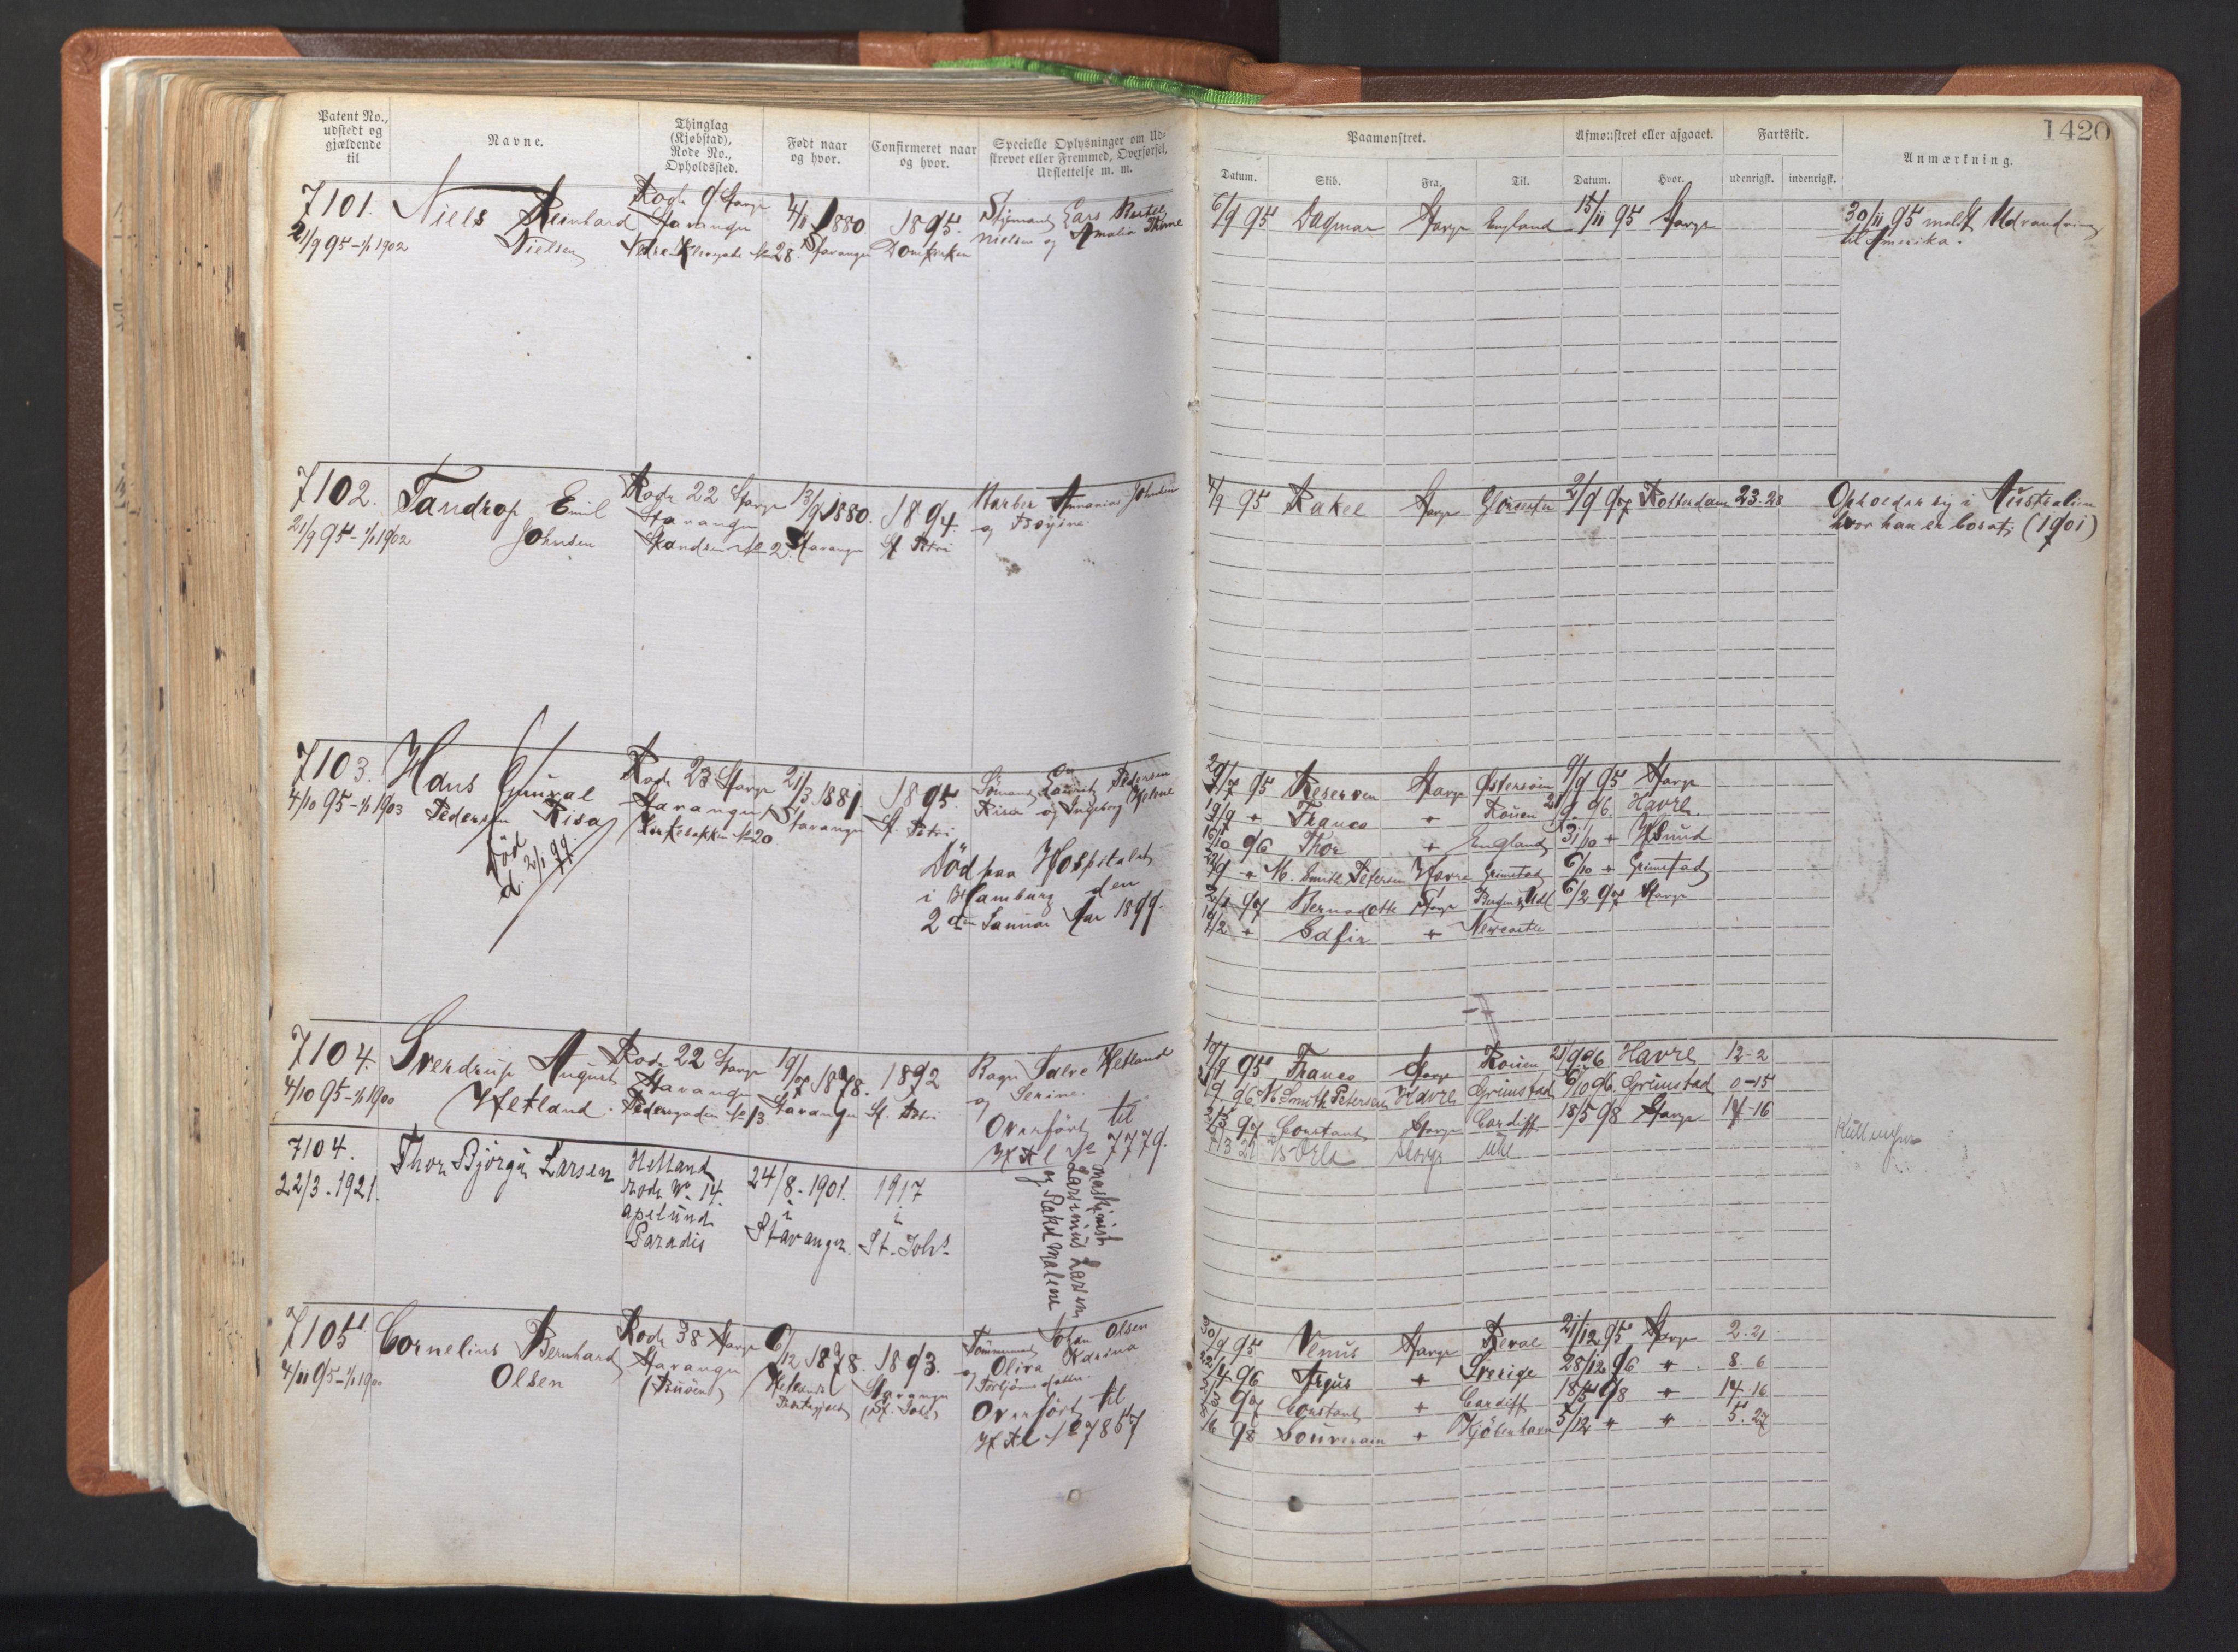 Patent No.,
udstedt og
gjældende
til
Navne.
Thinglag
(Kjøbstad),
Rode No.,
Opholdssted.
Født naar
og hvor.
Confirmeret naar
og hvor.
Specielle Oplysninger om Ud-
skrevet eller Fremmed, Overførsel,
Udslettelse m. m.
Paamønstret.
Afmønstret eller afgaaet.
Fartstid.
Anmærkning.
1420
Datum.
Skib.
Fra.
Til.
Datum.
Hvor.
udenrigsk.
indenrigsk.
7101.
21/9 95 - 1/1 1902
Niels Reinhard
Nielsen
Rode 9 Stavgr
Stavanger
Nedre No 28.
4/11 1880
Stavanger
1895.
Domkirken
Styrmand Lars
Nielsen og Amalia
6/9 95 Dagmar Stavgr England 15/11 95 Stavgr
30/11 95 meldt Udvandring
til Amerika.
7102.
21/9 95 - 1/1 1902
Tandrop Emil
Johnsen
Rode 22 Stavgr
Stavanger
No 2.
13/9 1880.
Stavanger
1894.
St Petri
Barber Johnsen
og
7/9 95 Rakel Stavgr Glocester 2/9 97 Rotterdam 23-28
Opholder sig i Australien
hvor han er bosat (1901)
7103.
4/10 95 - 1/1 1903
Hans Gunval
Pedersen Risa
Død
d. 2/1 99.
Rode 23 Stavgr
Stavanger
Kirkebakken No 20
21/3 1881
Stavanger
1895.
St. Petri
Sømand Laurits Pedersen
Risa og Ingeborg Helene
Död paa Hospitalet
i Hamburg den
2den Januar 1899.
29/7 95 Reserven Stavgr Østersøen 9/9 95 Stavgr
19/9 " Franco " Rouen 21/9 96. Havre.
96 Thor " England 31/10 " Hsund
" N. Smith Petersen Havre Grimstad 6/10 " Grimstad
97 Bernadotte Stavgr 6/2 97 Stavgr
" " Newcastle
7104.
4/10 95 - 1/1 1900
Sverdrup August
Hetland.
Rode 22 Stavgr
Stavanger
Pedersgaden No 13.
19/7 1878.
Stavanger
1892
St. Petri
Bager Salve Hetland
og Serine.
Overført til
No 7779.
19/9 95 Franco Stavgr Rouen 21/9 96 Havre 12-2
96 N. Smith Petersen Havre Grimstad 6/10 96 Grimstad 0-15
2/3 97 Constant Stavgr Cardiff 18/5 98 Stavgr 14-16
7104.
22/3 - 1921.
Thor Bjørgu Larsen
Hetland
Rode No. 14
Paradis
24/8 - 1901.
i
Stavanger.
1917
i
St. Johs
maskinist
Larsen
og Malene
7105
4/11 95 - 1/1 1900
Cornelius Bernhard
Olsen
Rode 38 Stavgr
Stavanger
6/12 1878.
Hetland
1893.
Stavanger
(St. Johs)
Tømmermand Johan Olsen
og Oliva Karina
Overført til
No 7857
30/9 95 Venus Stavgr Reval 21/12 95 Stavgr 2.21
22/4 96 Argus " Sverige 28/12 96 " 8. 6
2/3 97 Constant " Cardiff 18/5 98 " 14.16
8/6 98 Souverain " Kjöbenhavn 5/12 " " 5.27